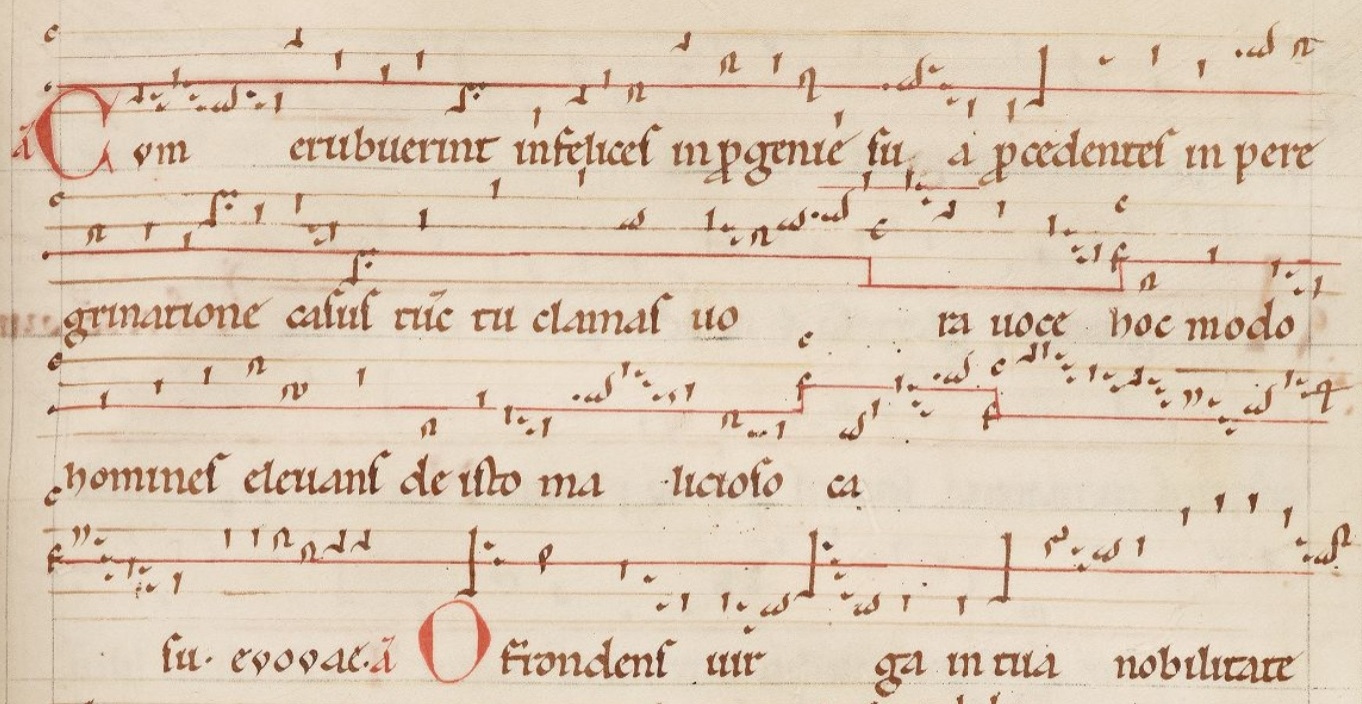 ā Cvm erubuerint infelices in ꝓgenie sua ꝓcedentes in pere
grinatione casus tūc tu clamas uo ra uoce hoc modo
homines eleuans de isto ma licioso ca
su. evovae. ā O frondens uir ga in tua nobilitate